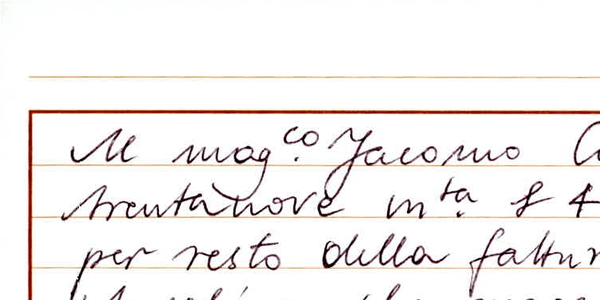 Al mag.co Jacomo
trentanove in ta. £ 4
per resto della fattur